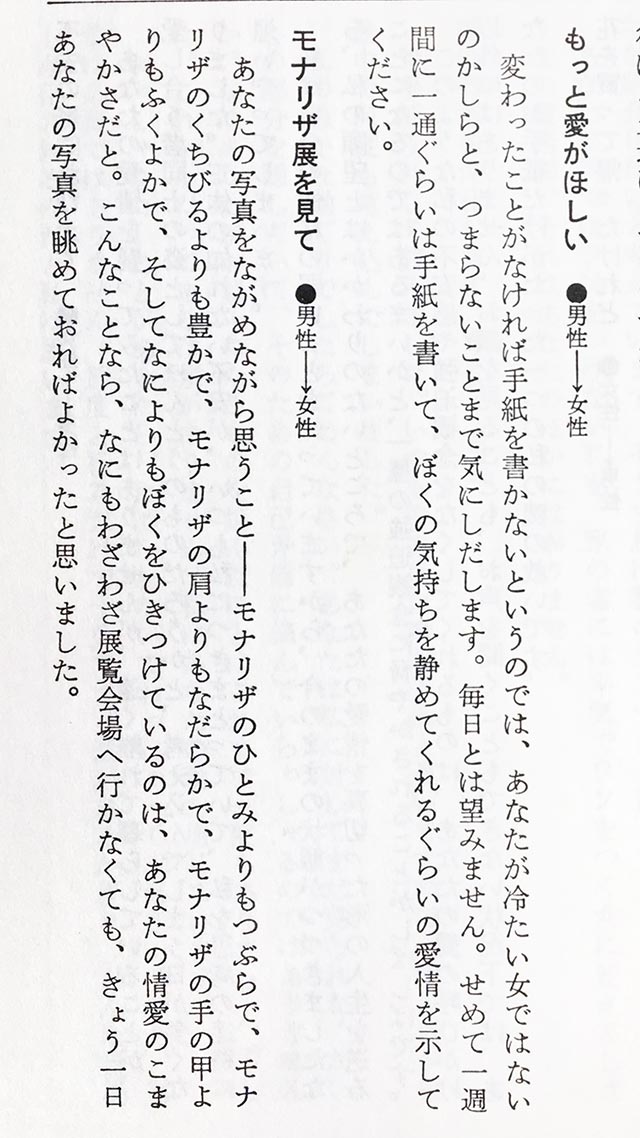 もっと愛がほしい ●男性→女性
変わったことがなければ手紙を書かないというのでは、あなたが冷たい女ではない
のかしらと、つまらないことまで気にしだします。毎日とは望みません。せめて一週
間に一通ぐらいは手紙を書いて、ぼくの気持ちを静めてくれるぐらいの愛情を示して
ください。
モナリザ展を見て ●男性→女性
あなたの写真をながめながら思うこと——モナリザのひとみよりもつぶらで、モナ
リザのくちびるよりも豊かで、モナリザの肩よりもなだらかで、モナリザの手の甲よ
りもふくよかで、そしてなによりもぼくをひきつけているのは、あなたの情愛のこま
やかさだと。こんなことなら、なにもわざわざ展覧会場へ行かなくても、きょう一日
あなたの写真を眺めておればよかったと思いました。